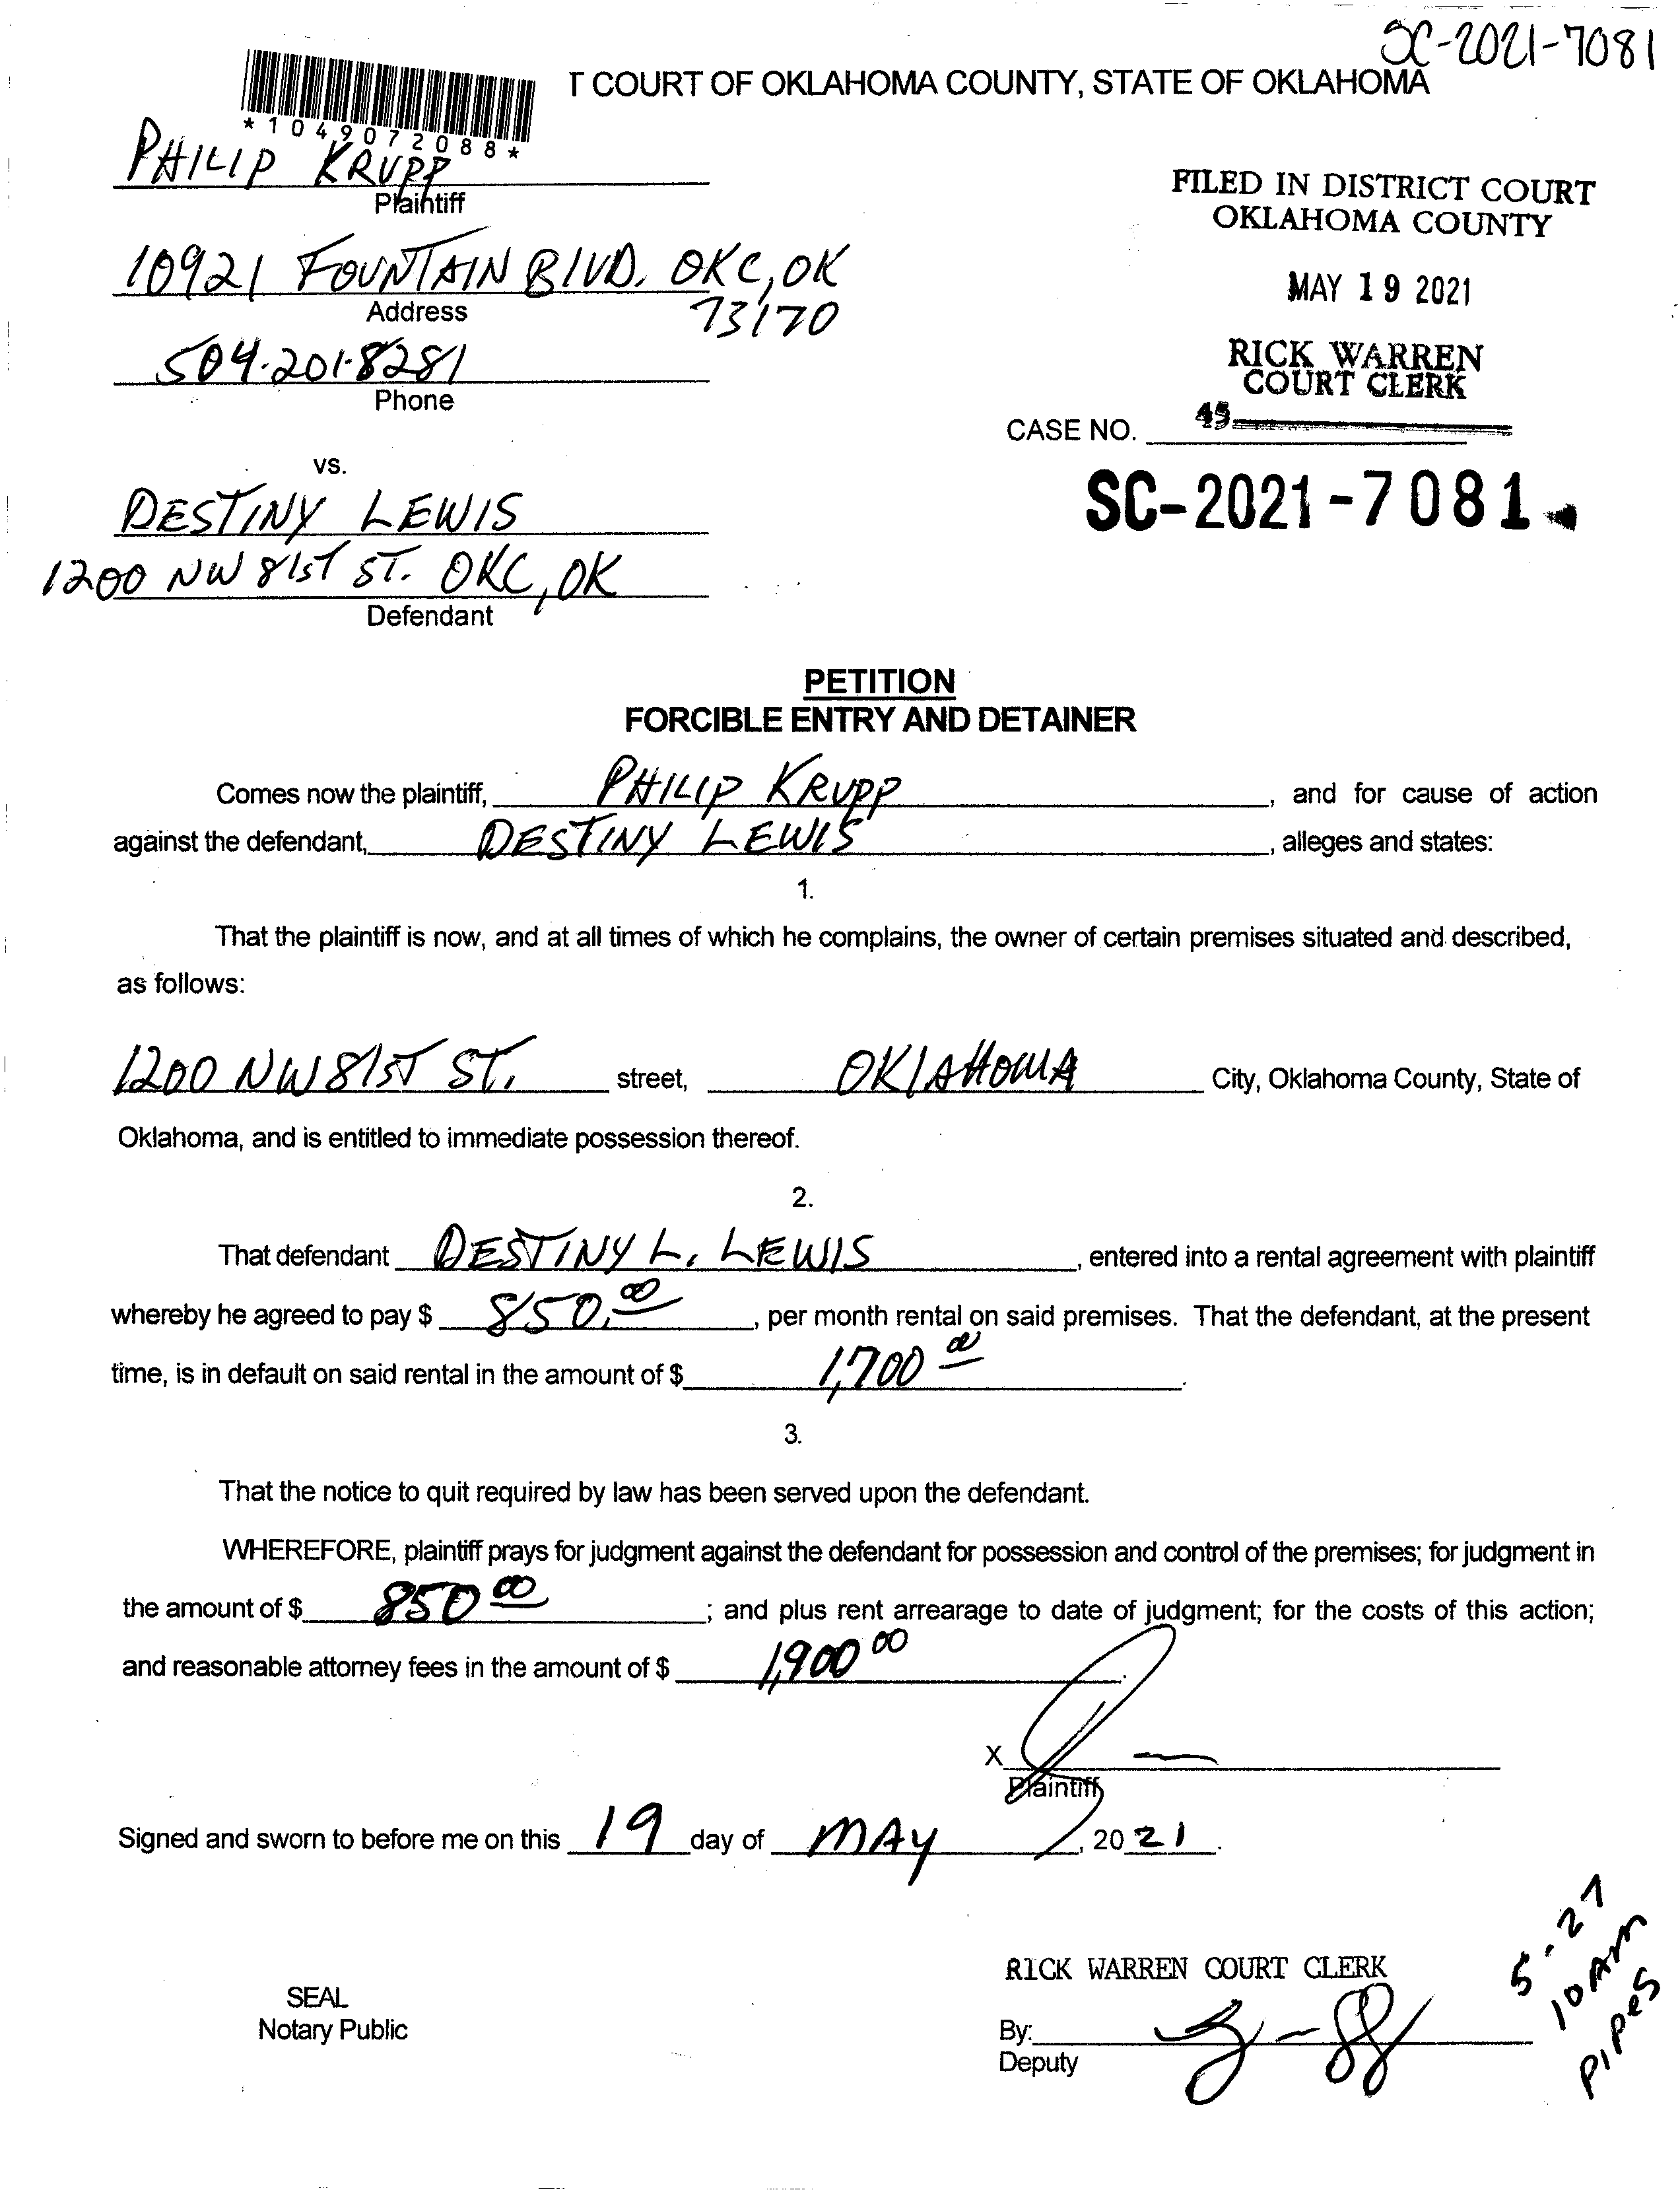 SC-2021-7081
T COURT OF OKLAHOMA COUNTY, STATE OF OKLAHOMA
*1049072088*
PHILIP KRUPP
Plaintiff
FILED IN DISTRICT COURT
OKLAHOMA COUNTY
10921 FOUNTAIN BLVD. OKC, OK
Address
73170
MAY 19 2021
504.201.8281
Phone
RICK WARREN
COURT CLERK
CASE NO. 45
vs.
SC-2021-7081
DESTINY LEWIS
1200 NW 81ST ST. OKC, OK
Defendant
PETITION
FORCIBLE ENTRY AND DETAINER
Comes now the plaintiff, PHILIP KRUPP, and for cause of action
against the defendant, DESTINY LEWIS, alleges and states:
1.
That the plaintiff is now, and at all times of which he complains, the owner of certain premises situated and described,
as follows:
1200 NW 81ST ST. street, OKLAHOMA City, Oklahoma County, State of
Oklahoma, and is entitled to immediate possession thereof.
2.
That defendant DESTINY L. LEWIS, entered into a rental agreement with plaintiff
whereby he agreed to pay $ 850.00, per month rental on said premises. That the defendant, at the present
time, is in default on said rental in the amount of $ 1,700 00.
3.
That the notice to quit required by law has been served upon the defendant.
WHEREFORE, plaintiff prays for judgment against the defendant for possession and control of the premises; for judgment in
the amount of $ 850 00; and plus rent arrearage to date of judgment; for the costs of this action;
and reasonable attorney fees in the amount of $ 1,900 00.
X
Plaintiff
Signed and sworn to before me on this 19 day of MAY, 20 21.
5.27
10 AM
PIPES
RICK WARREN COURT CLERK
SEAL
Notary Public
By:
Deputy